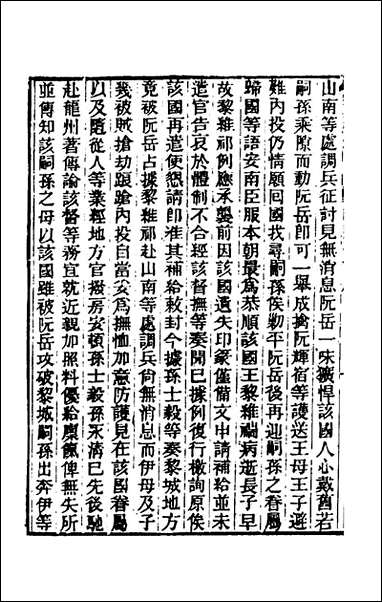 山南等處調兵征討見無消息阮岳一味獷悍該國人心戴舊若
嗣孫乘隙而動阮岳卽可一舉成擒阮輝宿等護送王母王子避
難內投仍情願回國找尋嗣孫俟勦平阮岳後再迎嗣孫之眷屬
歸國等語安南臣服本朝最爲恭順該國王黎維褍病逝長子早
故黎維祁例應承襲前因該國遺失印篆僅備文申請補給並未
遣官告哀於體制不合經該督撫等奏聞已據例復行檄詢原俟
該國再遣使懇請卽准其補給敕封今據孫士毅等奏黎城地方
竟被阮岳占據黎維祁赴山南等處調兵尙無消息而伊母及子
幾被賊搶劫踉蹌內投自當妥爲撫恤加意防護見在該國眷屬
以及隨從人等業經地方官撥房安頓孫士毅孫永淸已先後馳
赴龍州著傳諭該督等務宜就近親加照料優給廩餼俾無失所
並傳知該嗣孫之母以該國雖被阮岳攻破黎城嗣孫出奔伊等